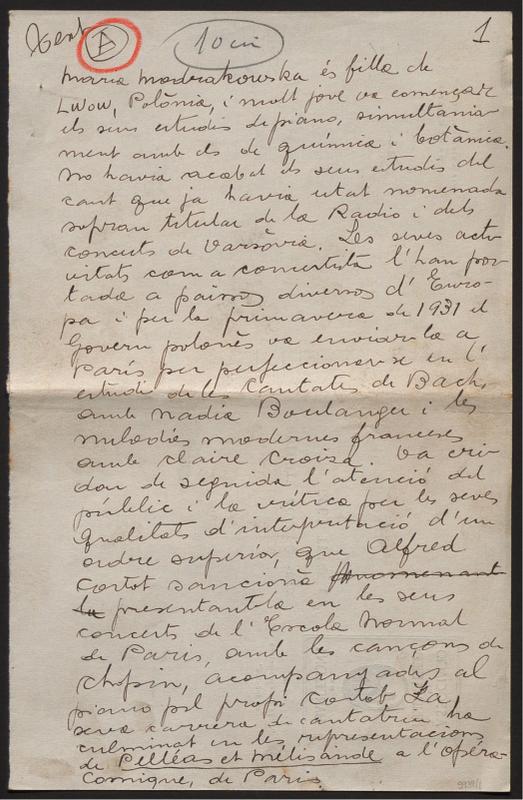 Text A 10 cm 1
Maria Modrakowska és filla de
Lwow, Polònia, i molt jove va començar
els seus estudis de piano, simultània-
ment amb els de química i botànica.
No havia acabat els seus estudis del
cant que ja havia estat nomenada
sopran titular de la Radio i dels
concerts de Varsòvia. Les seves acti-
vitats com a concertista l'han por-
tada a països diversos d'Euro-
pa i per la primavera de 1931 el
Govern polonès va enviar-la a
París per perfeccionar-se en l'
estudi de les Cantates de Bach,
amb Nadia Boulanger i les
melodies modernes franceses
amb Claire Croiza. Va cri-
dar de seguida l'atenció del
públic i la crítica per les seves
qualitats d'interpretació d'un
ordre superior, que Alfred
Cortot sancionà
la presentant-la en les seus
concerts de l'Escola Normal
de Paris, amb les cançons de
Chopin, acompanyades al
piano pel propi Cortot. La
seva carrera de cantatriu ha
culminat en les representacions
de Pelléas et Mélisande a l'Opéra-
Comique, de Paris.